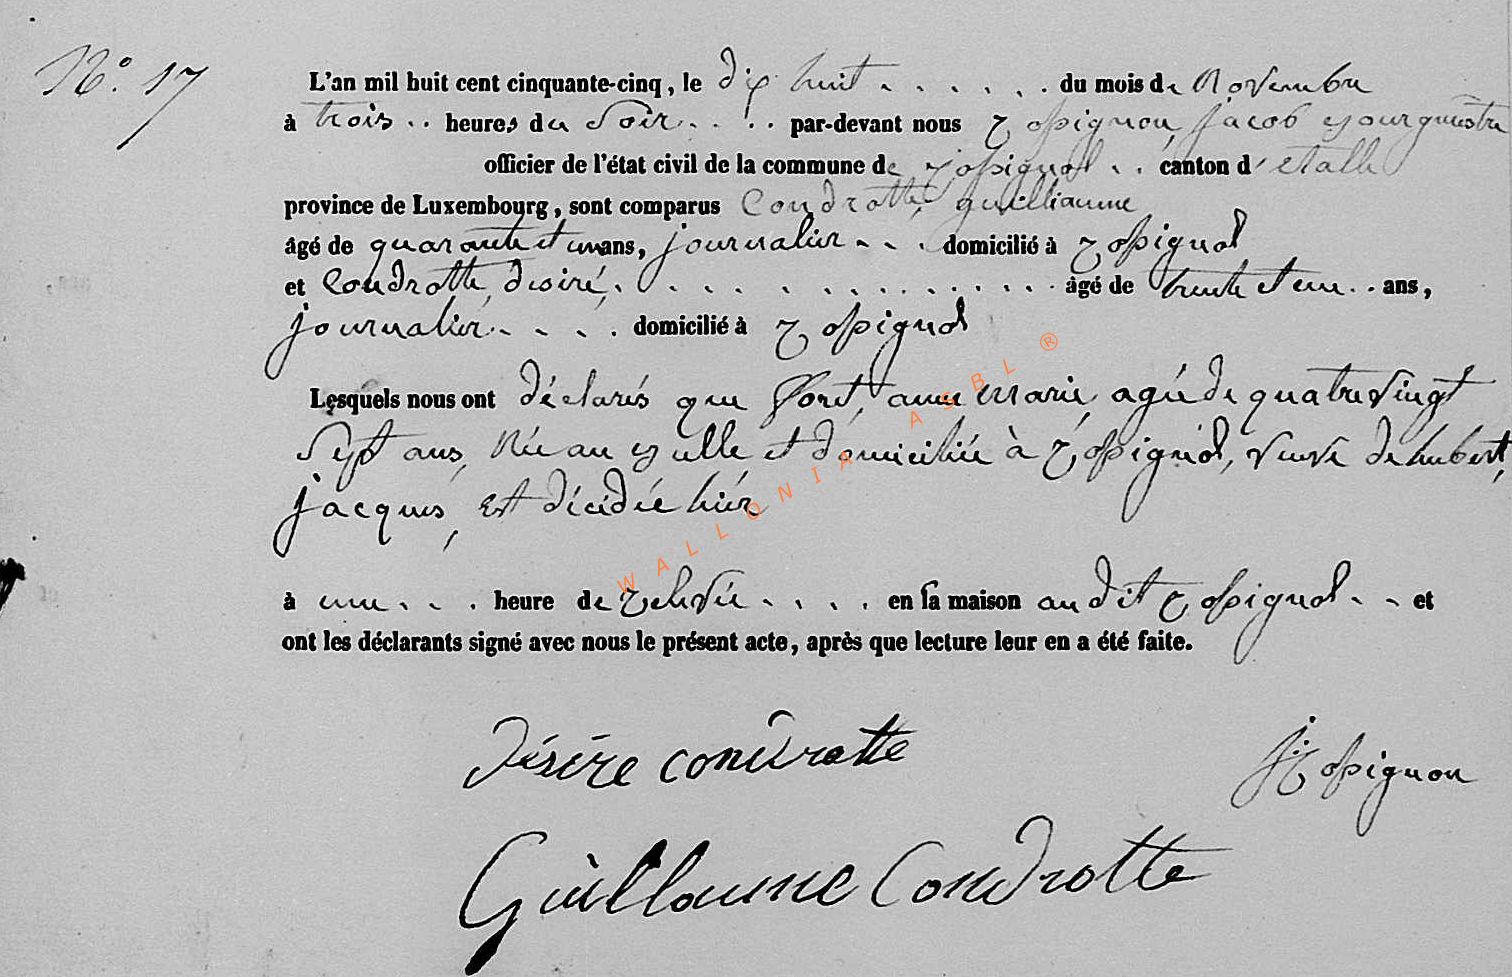 N.° 17
L'an mil huit cent cinquante-cinq, le dix huit . . . . . . du mois de Novembre
à trois .. heures du Soir . . . . par-devant nous Rossignon, jacob Bourguemestre
officier de l'état civil de la commune de rossignol . . canton d' etalle
province de Luxembourg, sont comparus Condrotte, guilliaume
âgé de quarante et un ans, journalier . . . domicilié à rossignol
et Condrotte, desiré, . . . . . . . . . . . . . . . âgé de trente et un . . ans,
journalier . . . . domicilié à rossignol
Lesquels nous ont déclarés que foret, anne Marie, agée de quatre vingt
Sept ans, Née au et domiciliée à rossignol, veuve de hubert,
jacques, est décédée hier
à une . . . heure de relevée . . . . en sa maison audit rossignol . . et
ont les déclarants signé avec nous le présent acte, après que lecture leur en a été faite.
Désire condrotte
J: Rossignon
Guillaume Condrotte
WALLONIA ASBL ®